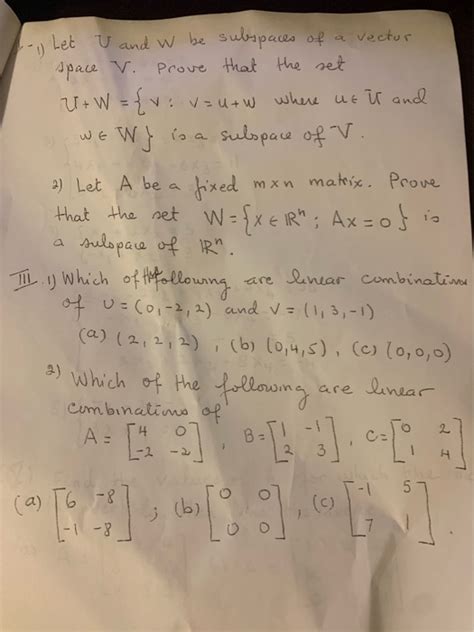 1) Let U and W be subspaces of a vector
space V. Prove that the set
U+W = { v : v = u+w where u ∈ U and
w ∈ W } is a subspace of V.
2) Let A be a fixed m×n matrix. Prove
that the set W = { x ∈ ℝⁿ ; Ax = 0 } is
a subspace of ℝⁿ.
III. 1) Which of the following are linear combinations
of u = (0, -2, 2) and v = (1, 3, -1)
(a) (2, 2, 2), (b) (0, 4, 5), (c) (0, 0, 0)
2) Which of the following are linear
combinations of
A = [4 0; -2 -2], B = [1 -1; 2 3], C = [0 2; 1 4]
(a) [6 -8; -1 -8]; (b) [0 0; 0 0], (c) [-1 5; 7 1].